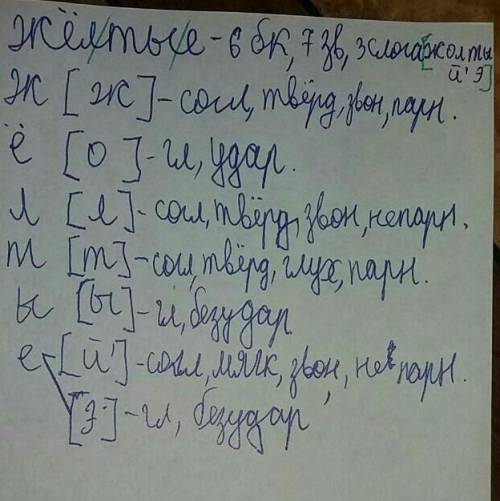 жёлтые - 6 бк, 7 зв, 3 слога [жолты
й' э]
ж [ж] - согл, твёрд, звон, парн.
ё [о] - гл, удар.
л [л] - согл, твёрд, звон, непарн.
т [т] - согл, твёрд, глух, парн.
ы [ы] - гл, безудар
е [й'] - согл, мягк, звон, непарн.
[э] - гл, безудар